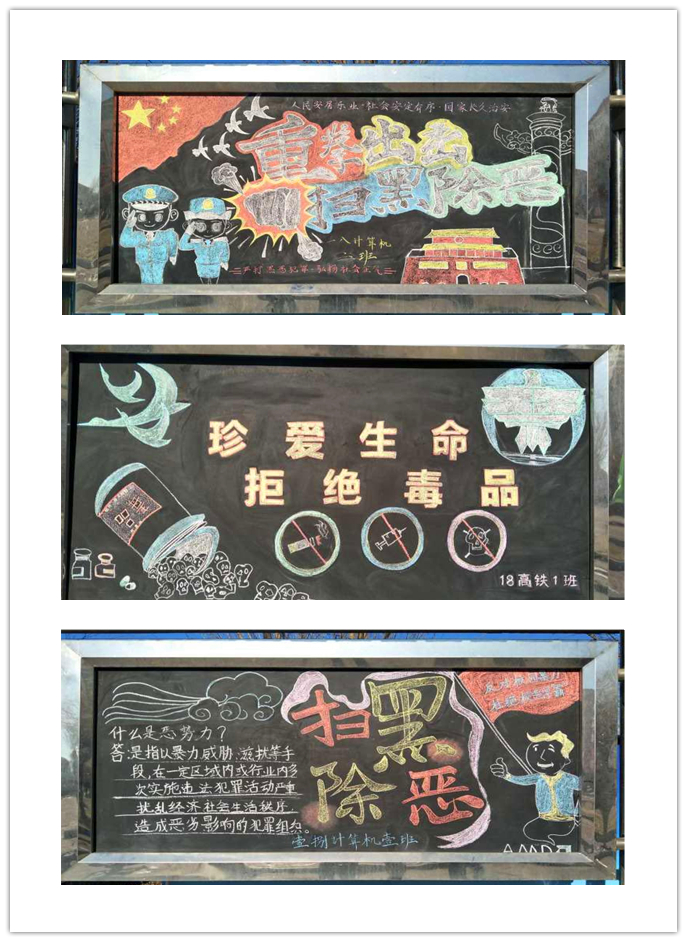 人民安居乐业·社会安定有序·国家长久治安
重拳出击
扫黑除恶
一八计算机
班
严打黑恶犯罪·弘扬社会正气
珍爱生命
拒绝毒品
毒品
18高铁1班
扫黑
除恶
反对校园暴力
什么是恶势力?
答:是指以暴力威胁、滋扰等手
段,在一定区域内或行业内多
次实施违法犯罪活动严重
扰乱经济社会生活秩序,
造成恶劣影响的犯罪组织。
壹捌计算机壹班
AMD